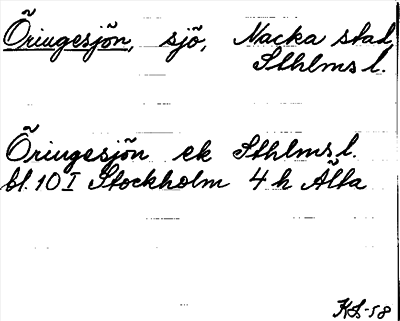 Öringesjön, sjö, Nacka stad,
Sthlms l.
Öringesjön ek Sthlms l.
bl. 10 I Stockholm 4 h Älta
KL-58